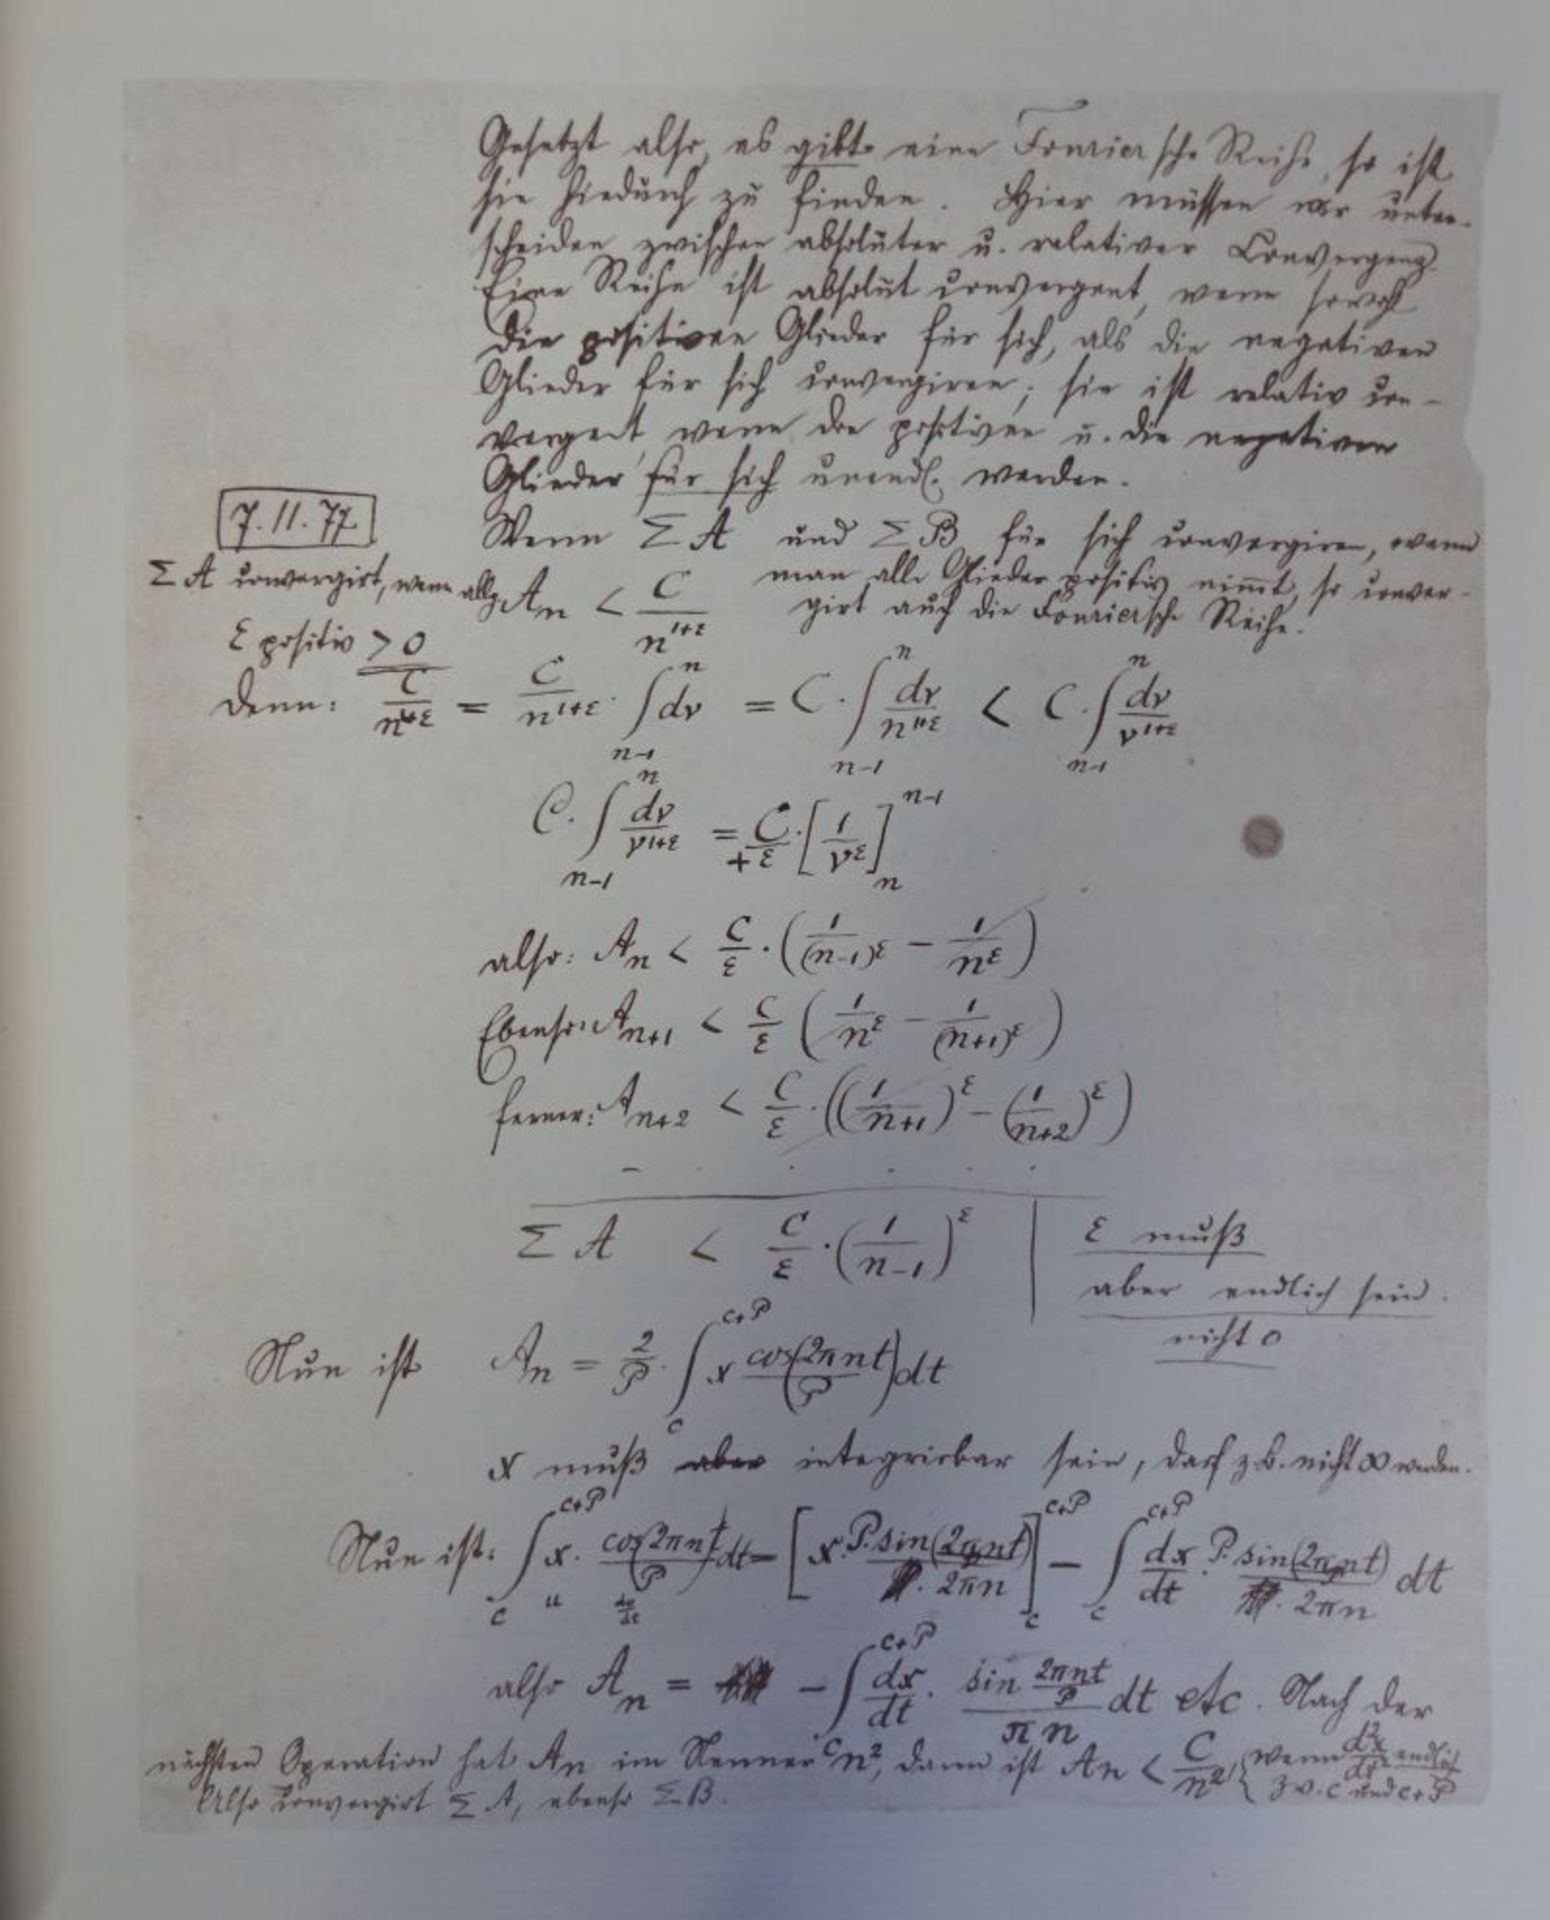 Gesetzt also, es gibt eine Fouriersche Reihe, so ist
sie hiedurch zu finden. Hier müssen wir unter-
scheiden zwischen absoluter u. relativer Convergenz.
Eine Reihe ist absolut convergent, wenn sowohl
die positiven Glieder für sich, als die negativen
Glieder für sich convergiren; sie ist relativ con-
vergent, wenn die positiven u. die negativen
Glieder für sich unendl. werden.
7.11.77
Wenn Σ A und Σ B für sich convergiren, wenn
man alle Glieder positiv nimmt, so conver-
girt auch die Fouriersche Reihe.
Σ A convergirt, wenn alle Aₙ < C/n^(1+ε)
ε positiv > 0
Denn: C/n^(1+ε) = C/n^(1+ε) · ∫_{n-1}^{n} dν = C · ∫_{n-1}^{n} dν/n^(1+ε) < C · ∫_{n-1}^{n} dν/ν^(1+ε)
C · ∫_{n-1}^{n} dν/ν^(1+ε) = + C/ε · [1/ν^ε]_{n}^{n-1}
also: Aₙ < C/ε · (1/(n-1)^ε − 1/n^ε)
Ebenso: Aₙ₊₁ < C/ε (1/n^ε − 1/(n+1)^ε)
ferner: Aₙ₊₂ < C/ε · ((1/(n+1))^ε − (1/(n+2))^ε)
Σ A < C/ε · (1/(n-1))^ε
ε muß
aber endlich sein.
nicht 0
Nun ist Aₙ = 2/P · ∫_{c}^{c+P} x cos(2πnt/P) dt
x muß aber integrirbar sein, darf z.b. nicht ∞ werden.
Nun ist: ∫_{c}^{c+P} x · cos(2πnt/P) dt = [x · P · sin(2πnt/P) / 2πn]_{c}^{c+P} − ∫_{c}^{c+P} dx/dt · P · sin(2πnt/P) / 2πn dt
also Aₙ = − ∫_{c}^{c+P} dx/dt · sin (2πnt/P) / πn dt etc. Nach der
nächsten Operation hat Aₙ im Nenner n², dann ist Aₙ < C/n², wenn d²x/dt² endlich
z w. c und c+P
Also convergirt Σ A, ebenso Σ B.